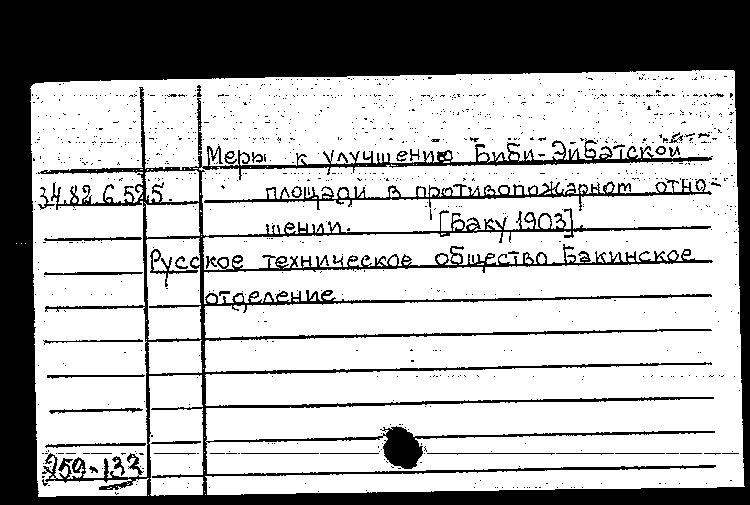 Меры к улучшению Биби-Эйбатской
34.82.6.525.
площади в противопожарном отно-
шении. [Баку, 1903].
Русское техническое общество. Бакинское
отделение.
259-133